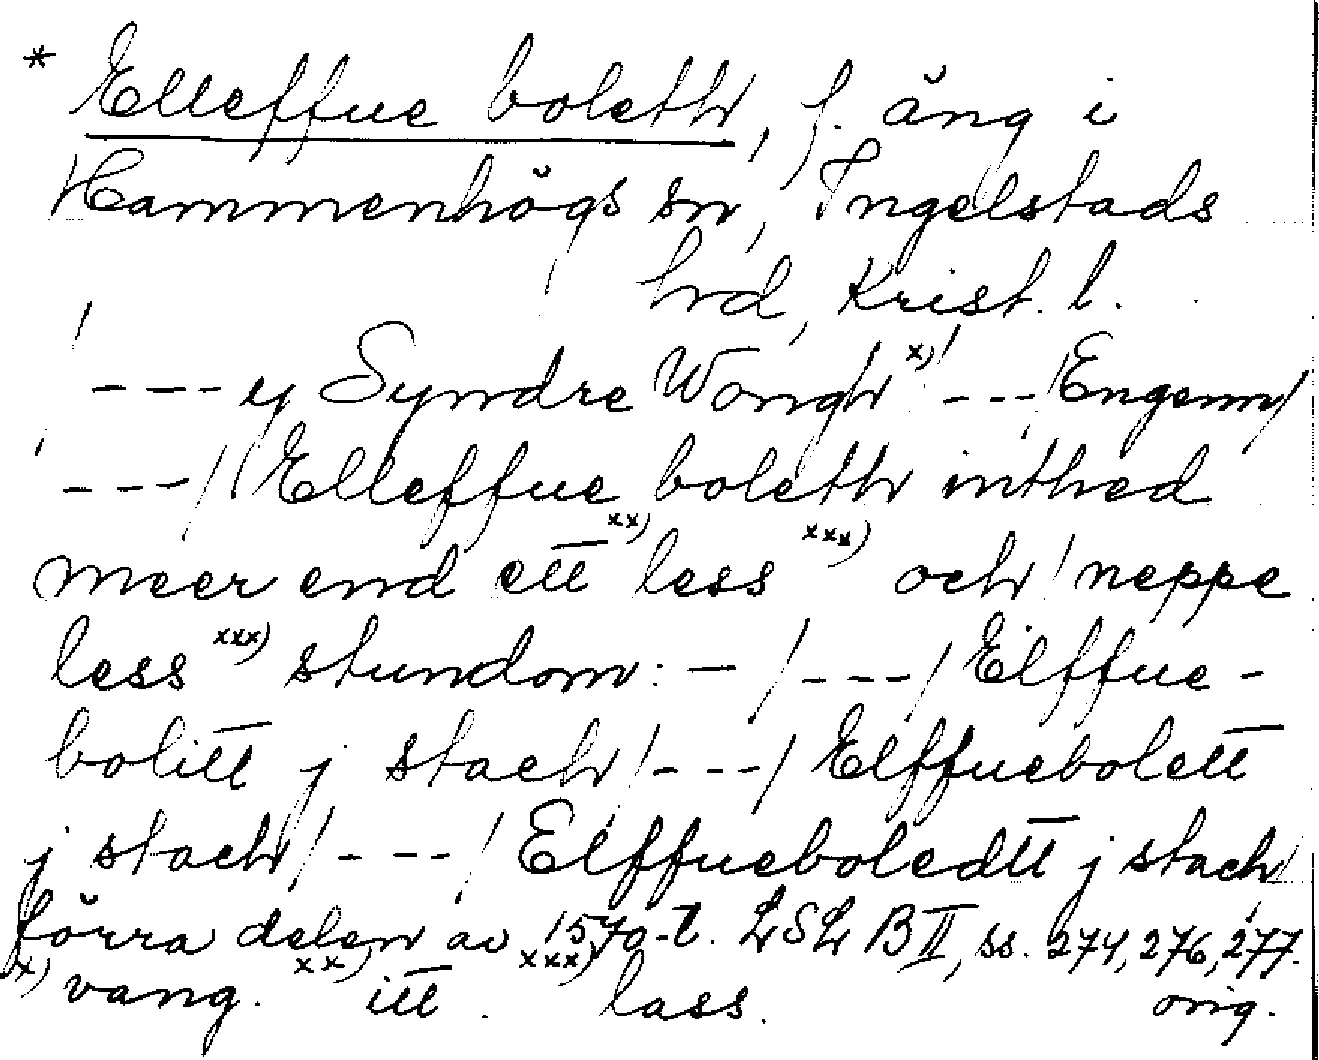 * Elleffue boleth, f. äng i
Hammenhögs sn, Ingelstads
hrd, Krist. l.
/ - - - y Syndre Wongh x) / - - - / Engenn /
/ - - - / Elleffue boleth inthed
meer end ett xx) less xxx) och / neppe
less xxx) stundom: - / - - - / Elffue-
bolitt j stach / - - - / Elffuebolett
j stach / - - - / Elffueboledtt j stach /
förra delen av 1570-t. LSL B II, ss. 274, 276, 277.
x) vang. xx) itt. xxx) lass. orig.